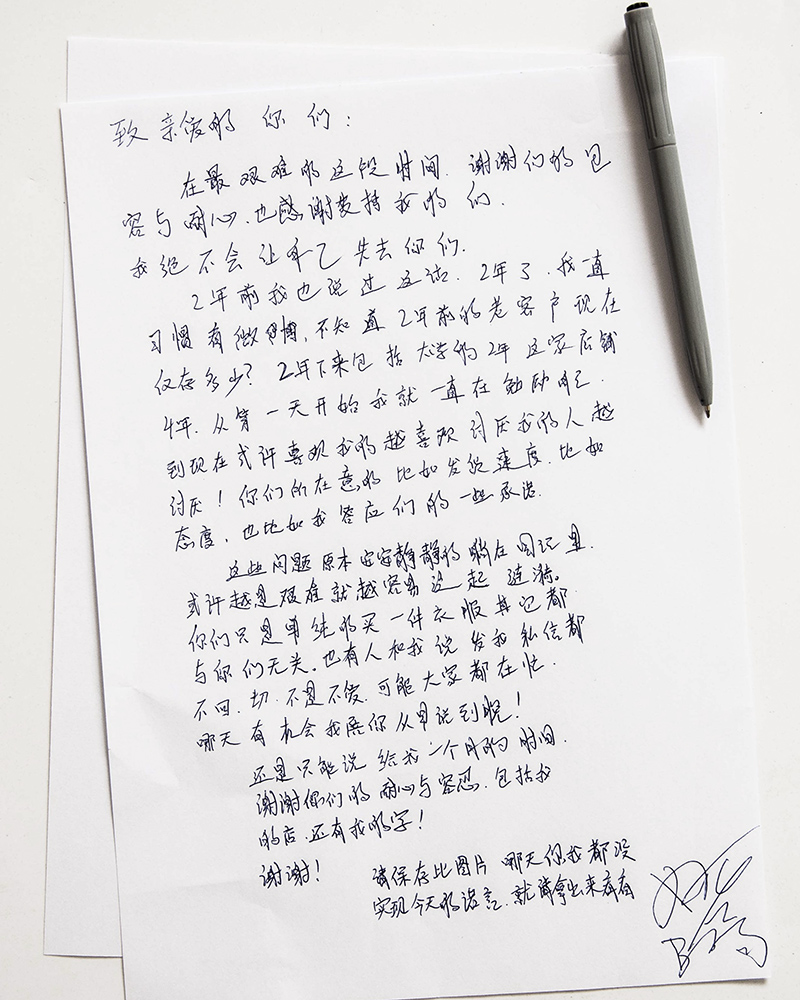 致 亲爱的 你 们：
在最 艰 难 的 这 段 时间. 谢谢们的 包
容 与 耐心. 也感谢支持 我 的 们.
我 绝 不 会 让 自己 失去 你 们.
2年前我也说过这话. 2年了. 我一直
习惯有微博, 不知道2年前的老客户现在
仅存多少? 2年下来包括大学的2年 这家店铺
4年. 从第一天开始我就一直在勉励自己.
到现在或许喜欢我的越喜欢 讨厌我的人越
讨厌! 你们所在意的 比如发货速度. 比如
态度. 也比如我答应们的一些承诺.
这些问题原本安安静静的躺在回忆里.
或许越是艰难就越容易泛起涟漪.
你们只是单纯的买一件衣服其它都
与你们无关. 也有人和我说发我私信都
不回. 切. 不是不爱. 可能大家都在忙.
哪天有机会我陪你从早说到晚!
还是只能说给我一个月的时间.
谢谢你们的耐心与容忍. 包括我
的店. 还有我的字!
谢谢! 请保存此图片 哪天你我都没
实现今天的诺言. 就请拿出来看看